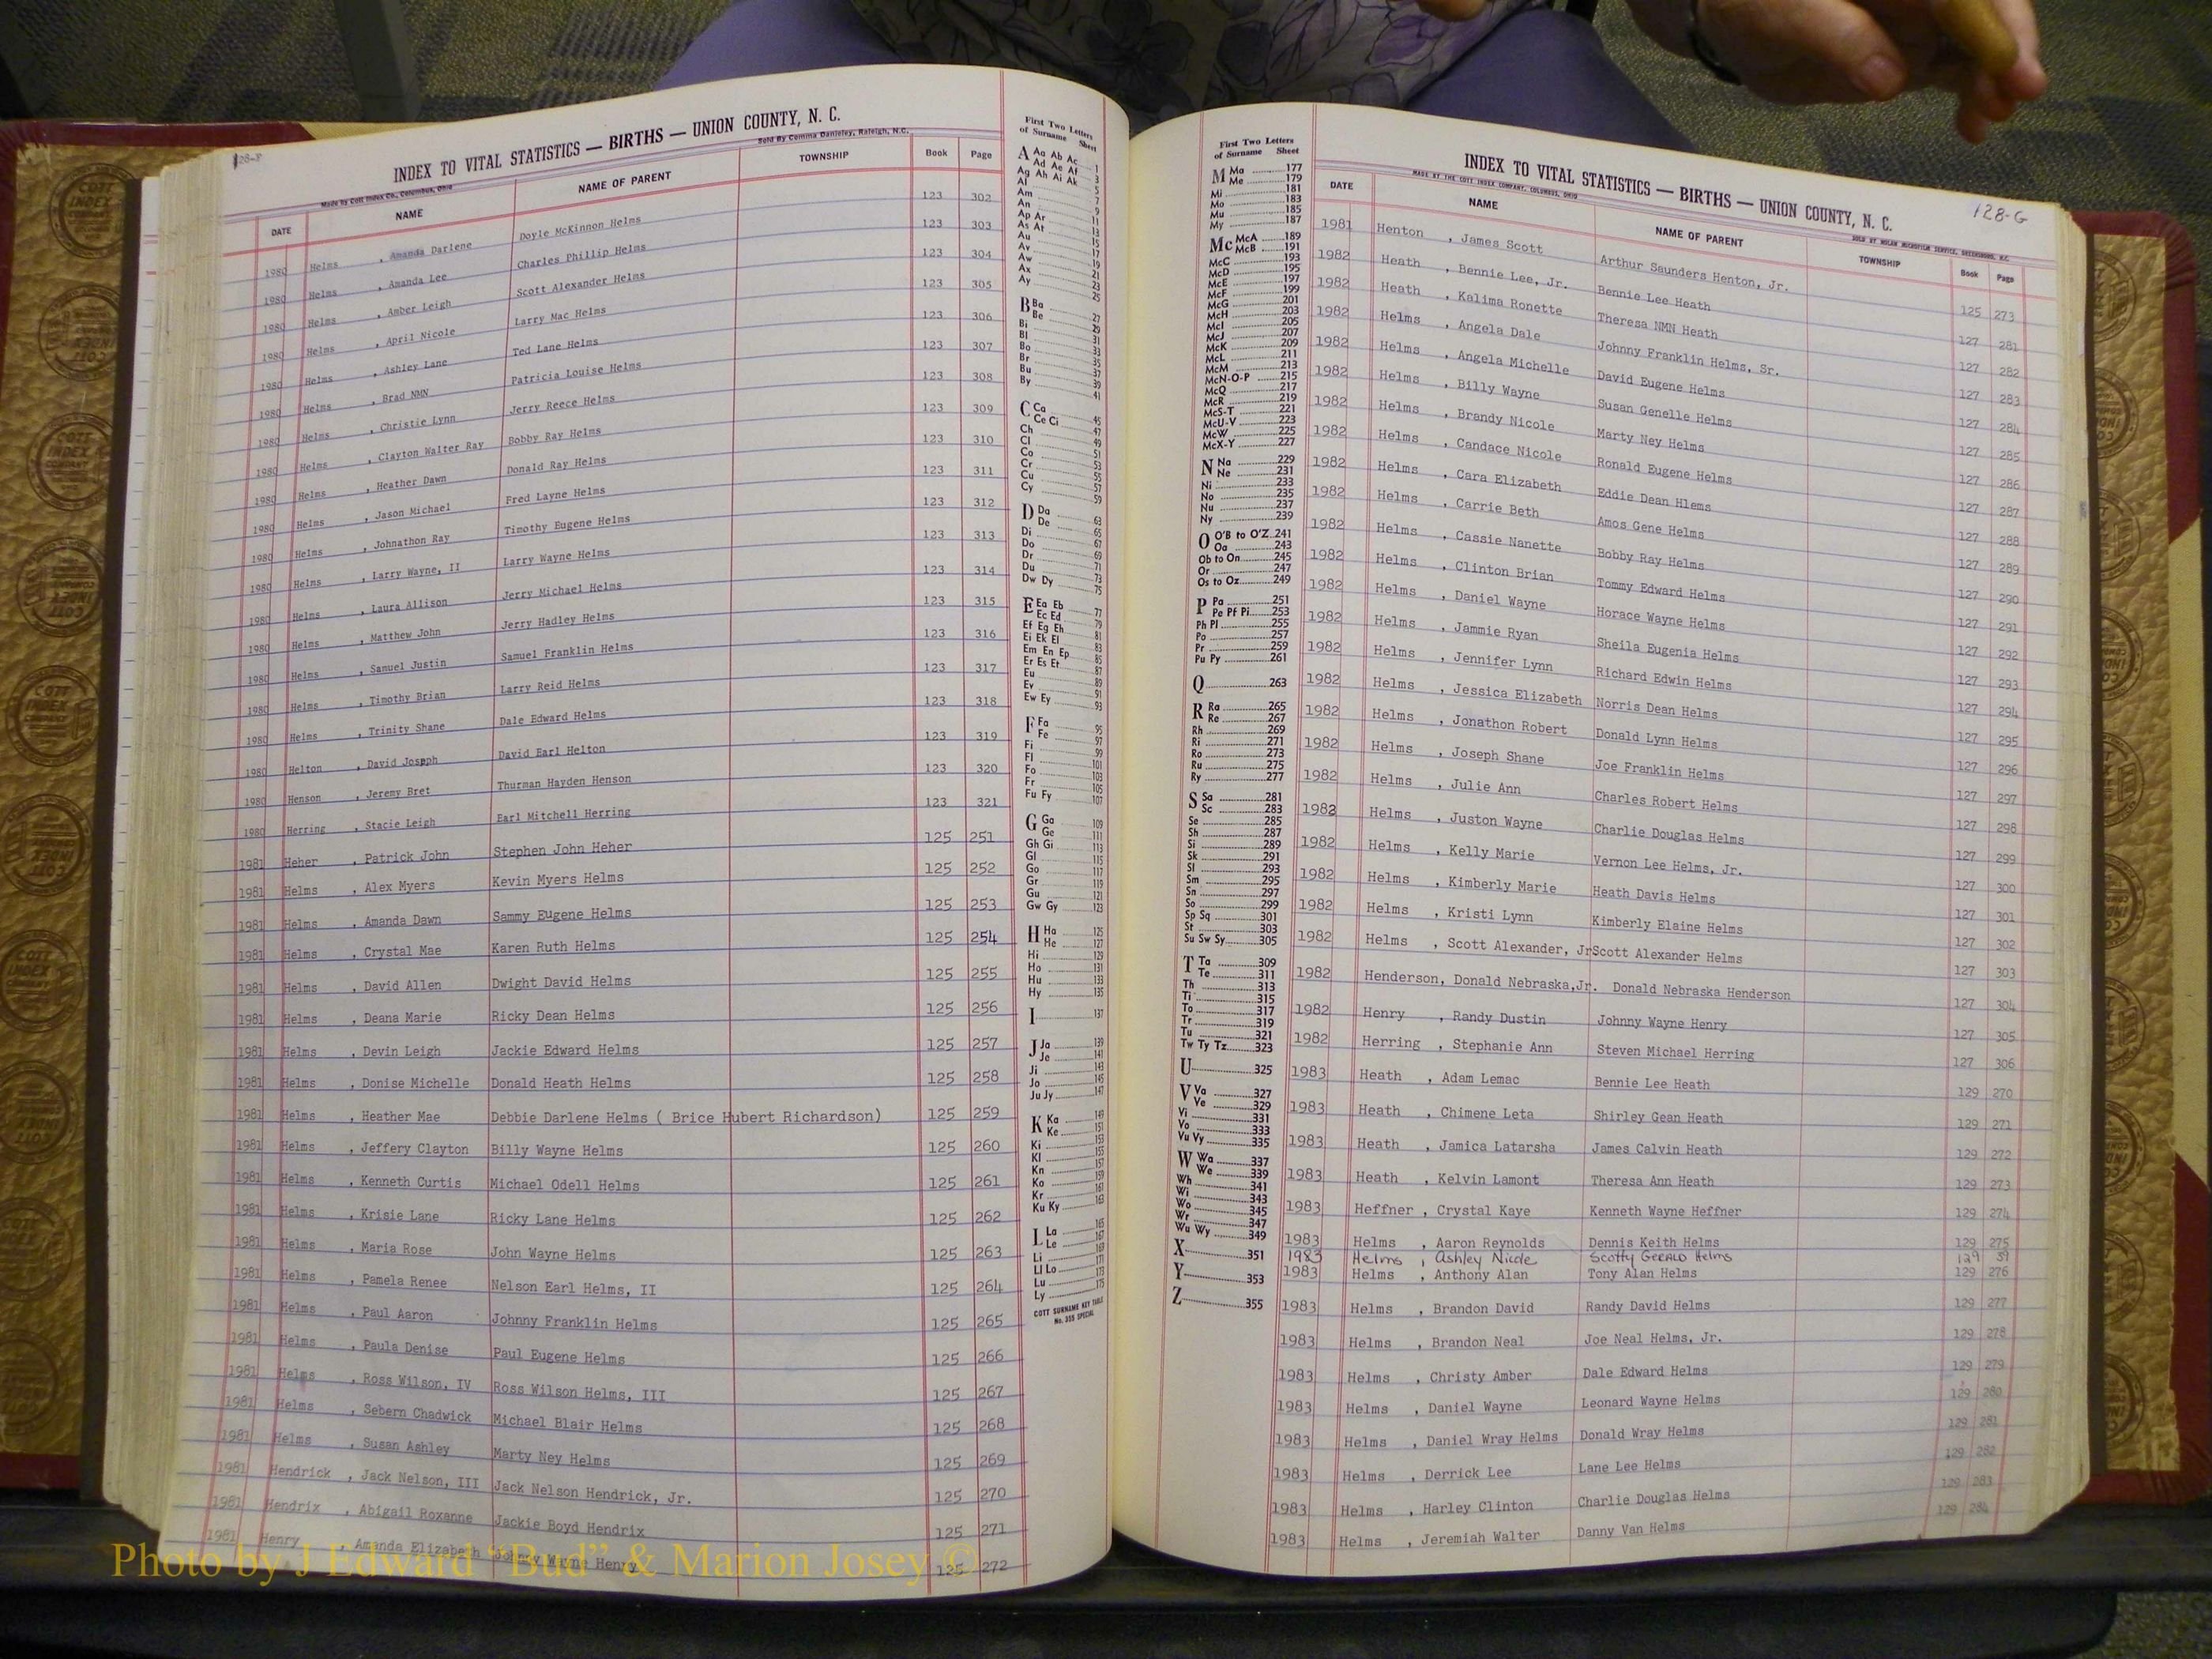 128-F
INDEX TO VITAL STATISTICS — BIRTHS — UNION COUNTY, N. C.
Made by Cott Index Co., Columbus, Ohio Sold By Comma Danieley, Raleigh, N.C.
DATE NAME NAME OF PARENT TOWNSHIP Book Page
1980 Helms , Amanda Darlene Doyle McKinnon Helms 123 302
1980 Helms , Amanda Lee Charles Phillip Helms 123 303
1980 Helms , Amber Leigh Scott Alexander Helms 123 304
1980 Helms , April Nicole Larry Mac Helms 123 305
1980 Helms , Ashley Lane Ted Lane Helms 123 306
1980 Helms , Brad NMN Patricia Louise Helms 123 307
1980 Helms , Christie Lynn Jerry Reece Helms 123 308
1980 Helms , Clayton Walter Ray Bobby Ray Helms 123 309
1980 Helms , Heather Dawn Donald Ray Helms 123 310
1980 Helms , Jason Michael Fred Layne Helms 123 311
1980 Helms , Johnathon Ray Timothy Eugene Helms 123 312
1980 Helms , Larry Wayne, II Larry Wayne Helms 123 313
1980 Helms , Laura Allison Jerry Michael Helms 123 314
1980 Helms , Matthew John Jerry Hadley Helms 123 315
1980 Helms , Samuel Justin Samuel Franklin Helms 123 316
1980 Helms , Timothy Brian Larry Reid Helms 123 317
1980 Helms , Trinity Shane Dale Edward Helms 123 318
1980 Helton , David Joseph David Earl Helton 123 319
1980 Henson , Jeremy Bret Thurman Hayden Henson 123 320
1980 Herring , Stacie Leigh Earl Mitchell Herring 123 321
1981 Heher , Patrick John Stephen John Heher 125 251
1981 Helms , Alex Myers Kevin Myers Helms 125 252
1981 Helms , Amanda Dawn Sammy Eugene Helms 125 253
1981 Helms , Crystal Mae Karen Ruth Helms 125 254
1981 Helms , David Allen Dwight David Helms 125 255
1981 Helms , Deana Marie Ricky Dean Helms 125 256
1981 Helms , Devin Leigh Jackie Edward Helms 125 257
1981 Helms , Donise Michelle Donald Heath Helms 125 258
1981 Helms , Heather Mae Debbie Darlene Helms ( Brice Hubert Richardson) 125 259
1981 Helms , Jeffery Clayton Billy Wayne Helms 125 260
1981 Helms , Kenneth Curtis Michael Odell Helms 125 261
1981 Helms , Krisie Lane Ricky Lane Helms 125 262
1981 Helms , Maria Rose John Wayne Helms 125 263
1981 Helms , Pamela Renee Nelson Earl Helms, II 125 264
1981 Helms , Paul Aaron Johnny Franklin Helms 125 265
1981 Helms , Paula Denise Paul Eugene Helms 125 266
1981 Helms , Ross Wilson, IV Ross Wilson Helms, III 125 267
1981 Helms , Sebern Chadwick Michael Blair Helms 125 268
1981 Helms , Susan Ashley Marty Ney Helms 125 269
1981 Hendrick , Jack Nelson, III Jack Nelson Hendrick, Jr. 125 270
1981 Hendrix , Abigail Roxanne Jackie Boyd Hendrix 125 271
1981 Henry , Amanda Elizabeth Johnny Wayne Henry 125 272
First Two Letters
of Surname Sheet
A Aa Ab Ac 1
Ad Ae Af 3
Ag Ah Ai Ak 5
Al 7
Am 9
An 11
Ap Ar 13
As At 15
Au 17
Av 19
Aw 21
Ax 23
Ay 25
B Ba 27
Be 29
Bi 31
Bl 33
Bo 35
Br 37
Bu 39
By 41
C Ca 45
Ce Ci 47
Ch 49
Cl 51
Co 53
Cr 55
Cu 57
Cy 59
D Da 63
De 65
Di 67
Do 69
Dr 71
Du 73
Dw Dy 75
E Ea Eb 77
Ec Ed 79
Ef Eg Eh 81
Ei Ek El 83
Em En Ep 85
Er Es Et 87
Eu 89
Ev 91
Ew Ey 93
F Fa 95
Fe 97
Fi 99
Fl 101
Fo 103
Fr 105
Fu Fy 107
G Ga 109
Ge 111
Gh Gi 113
Gl 115
Go 117
Gr 119
Gu 121
Gw Gy 123
H Ha 125
He 127
Hi 129
Ho 131
Hu 133
Hy 135
I 137
J Ja 139
Je 141
Ji 143
Jo 145
Ju Jy 147
K Ka 149
Ke 151
Ki 153
Kl 155
Kn 157
Ko 159
Kr 161
Ku Ky 163
L La 165
Le 167
Li 169
Ll Lo 171
Lu 173
Ly 175
COTT SURNAME KEY TABLE
No. 355 SPECIAL
First Two Letters
of Surname Sheet
M Ma 177
Me 179
Mi 181
Mo 183
Mu 185
My 187
Mc McA 189
McB 191
McC 193
McD 195
McE 197
McF 199
McG 201
McH 203
McI 205
McJ 207
McK 209
McL 211
McM 213
McN-O-P 215
McQ 217
McR 219
McS-T 221
McU-V 223
McW 225
McX-Y 227
N Na 229
Ne 231
Ni 233
No 235
Nu 237
Ny 239
O O'B to O'Z 241
Oa 243
Ob to On 245
Or 247
Os to Oz 249
P Pa 251
Pe Pf Pi 253
Ph Pl 255
Po 257
Pr 259
Pu Py 261
Q 263
R Ra 265
Re 267
Rh 269
Ri 271
Ro 273
Ru 275
Ry 277
S Sa 281
Sc 283
Se 285
Sh 287
Si 289
Sk 291
Sl 293
Sm 295
Sn 297
So 299
Sp Sq 301
St 303
Su Sw Sy 305
T Ta 309
Te 311
Th 313
Ti 315
To 317
Tr 319
Tu 321
Tw Ty Tz 323
U 325
V Va 327
Ve 329
Vi 331
Vo 333
Vu Vy 335
W Wa 337
We 339
Wh 341
Wi 343
Wo 345
Wr 347
Wu Wy 349
X 351
Y 353
Z 355
128-G
INDEX TO VITAL STATISTICS — BIRTHS — UNION COUNTY, N. C.
MADE BY THE COTT INDEX COMPANY, COLUMBUS, OHIO SOLD BY MICROFILM SERVICE, GREENSBORO, N.C.
DATE NAME NAME OF PARENT TOWNSHIP Book Page
1981 Henton , James Scott Arthur Saunders Henton, Jr. 125 273
1982 Heath , Bennie Lee, Jr. Bennie Lee Heath 127 281
1982 Heath , Kalima Ronette Theresa NMN Heath 127 282
1982 Helms , Angela Dale Johnny Franklin Helms, Sr. 127 283
1982 Helms , Angela Michelle David Eugene Helms 127 284
1982 Helms , Billy Wayne Susan Genelle Helms 127 285
1982 Helms , Brandy Nicole Marty Ney Helms 127 286
1982 Helms , Candace Nicole Ronald Eugene Helms 127 287
1982 Helms , Cara Elizabeth Eddie Dean Hlems 127 288
1982 Helms , Carrie Beth Amos Gene Helms 127 289
1982 Helms , Cassie Nanette Bobby Ray Helms 127 290
1982 Helms , Clinton Brian Tommy Edward Helms 127 291
1982 Helms , Daniel Wayne Horace Wayne Helms 127 292
1982 Helms , Jammie Ryan Sheila Eugenia Helms 127 293
1982 Helms , Jennifer Lynn Richard Edwin Helms 127 294
1982 Helms , Jessica Elizabeth Norris Dean Helms 127 295
1982 Helms , Jonathon Robert Donald Lynn Helms 127 296
1982 Helms , Joseph Shane Joe Franklin Helms 127 297
1982 Helms , Julie Ann Charles Robert Helms 127 298
1982 Helms , Juston Wayne Charlie Douglas Helms 127 299
1982 Helms , Kelly Marie Vernon Lee Helms, Jr. 127 300
1982 Helms , Kimberly Marie Heath Davis Helms 127 301
1982 Helms , Kristi Lynn Kimberly Elaine Helms 127 302
1982 Helms , Scott Alexander, Jr Scott Alexander Helms 127 303
1982 Henderson, Donald Nebraska,Jr. Donald Nebraska Henderson 127 304
1982 Henry , Randy Dustin Johnny Wayne Henry 127 305
1982 Herring , Stephanie Ann Steven Michael Herring 127 306
1983 Heath , Adam Lemac Bennie Lee Heath 129 270
1983 Heath , Chimene Leta Shirley Gean Heath 129 271
1983 Heath , Jamica Latarsha James Calvin Heath 129 272
1983 Heath , Kelvin Lamont Theresa Ann Heath 129 273
1983 Heffner , Crystal Kaye Kenneth Wayne Heffner 129 274
1983 Helms , Aaron Reynolds Dennis Keith Helms 129 275
1983 Helms , Ashley Nicole Scotty Gerald Helms 129
1983 Helms , Anthony Alan Tony Alan Helms 129 276
1983 Helms , Brandon David Randy David Helms 129 277
1983 Helms , Brandon Neal Joe Neal Helms, Jr. 129 278
1983 Helms , Christy Amber Dale Edward Helms 129 279
1983 Helms , Daniel Wayne Leonard Wayne Helms 129 280
1983 Helms , Daniel Wray Helms Donald Wray Helms 129 281
1983 Helms , Derrick Lee Lane Lee Helms 129 282
1983 Helms , Harley Clinton Charlie Douglas Helms 129 283
1983 Helms , Jeremiah Walter Danny Van Helms 129 284
Photo by J Edward “Bud” & Marion Josey ©